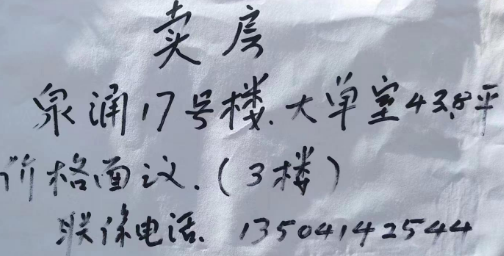 卖房
泉涌17号楼.大单室43.8平
价格面议.(3楼)
联系电话.13504142544